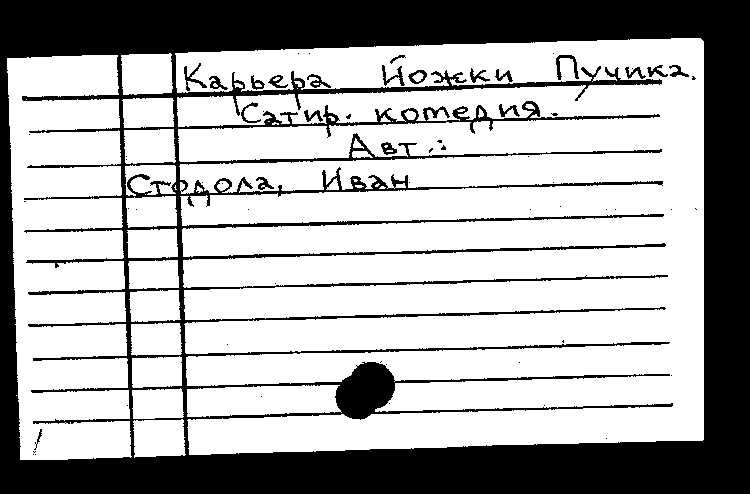 Карьера Йожки Пучика.
Сатир. комедия.
Авт.:
Стодола, Иван